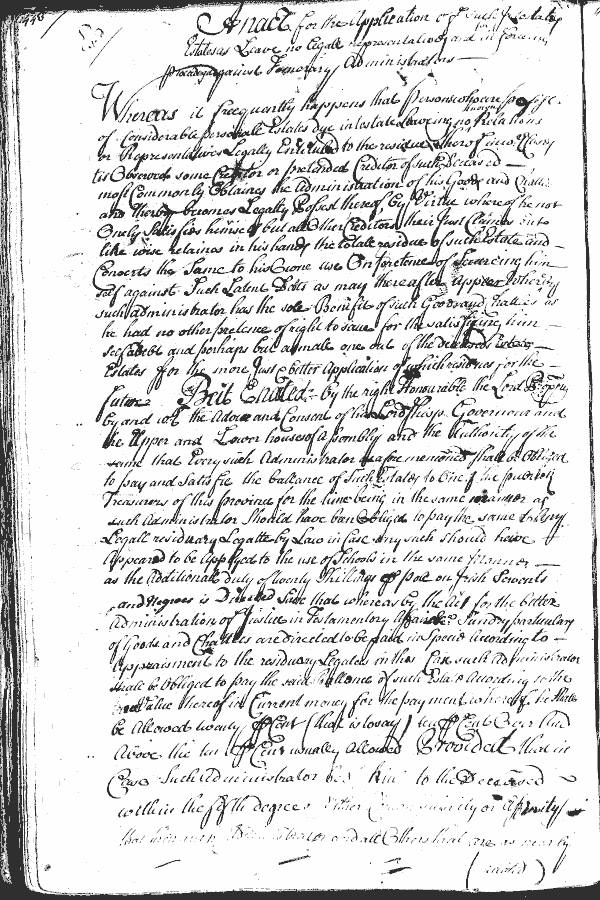 An act for the Application of Such Intestates
Estates as Leave no legall representatives and in forceing
against Temorary Administrators
Whereas it frequantly happens that persons
of Considerable personall Estates dye intestate leaveing no known Relations
or Representatives Legally Entituled to the residue thereof
tis Observed some Creditor or pretended Creditor of such Deceased
most Commonly Obtaines the Administration of his Goods and
and thereby becomes Legally Possest thereof by Virtue whereof he not
Onely Satisfies himself but all Other Creditors their Just Claimes
like wise retaines in his hands the totall residue of such Estate and
Converts the Same to his owne use On Pretence of Secureing him
self against Such Latent Debts as may thereafter Appear whereby
such administrator has the sole Benefit of such Goods and as
he had no other pretence of right to save for the satisfieing him
self a debt and perhaps but a small one out of the
Estates for the more Just & better Application of which residues for the
future Be it Enacted By the right Honourable the Lord
by and with the Advice and Consent of his Lordships Governour and
the Upper and Lower houses of Assembly and the Authority of the
same that Every such Administrator as afore mentioned shall be Obliged
to pay and Satisfie the ballance of Such Estates to One of the publick
Treasurers of this province for the time being in the same manner as
such Administrator Should have ban obliged to pay the same to Any
Legall residuary Legatee by Law in Case any such should have
Appeared to be Applyed to the use of Schools in the same Manner
as the Additionall duty of twenty Shillings Poll on Irish Servants
and Negroes is Directed Save that whereas by the Act for the better
Administration of Justice in Testamentary Sundry particulars
of Goods and are directed to be paid in Specie According to
Appraisment to the residuary Legatees in this Case such Administrator
shall be Obliged to pay the said Ballance of such Estate According to the
Value thereof in Current money for the payment whereof he shall
be Allowed twenty Cent (that is to say) ten Cent Over and
Above the ten Cent usually Allowed Provided that in
Case Such Administrator be kin to the Deceased
within the fifth degree Either Consanguinity or Affinity
that then and all Others that are as nearly